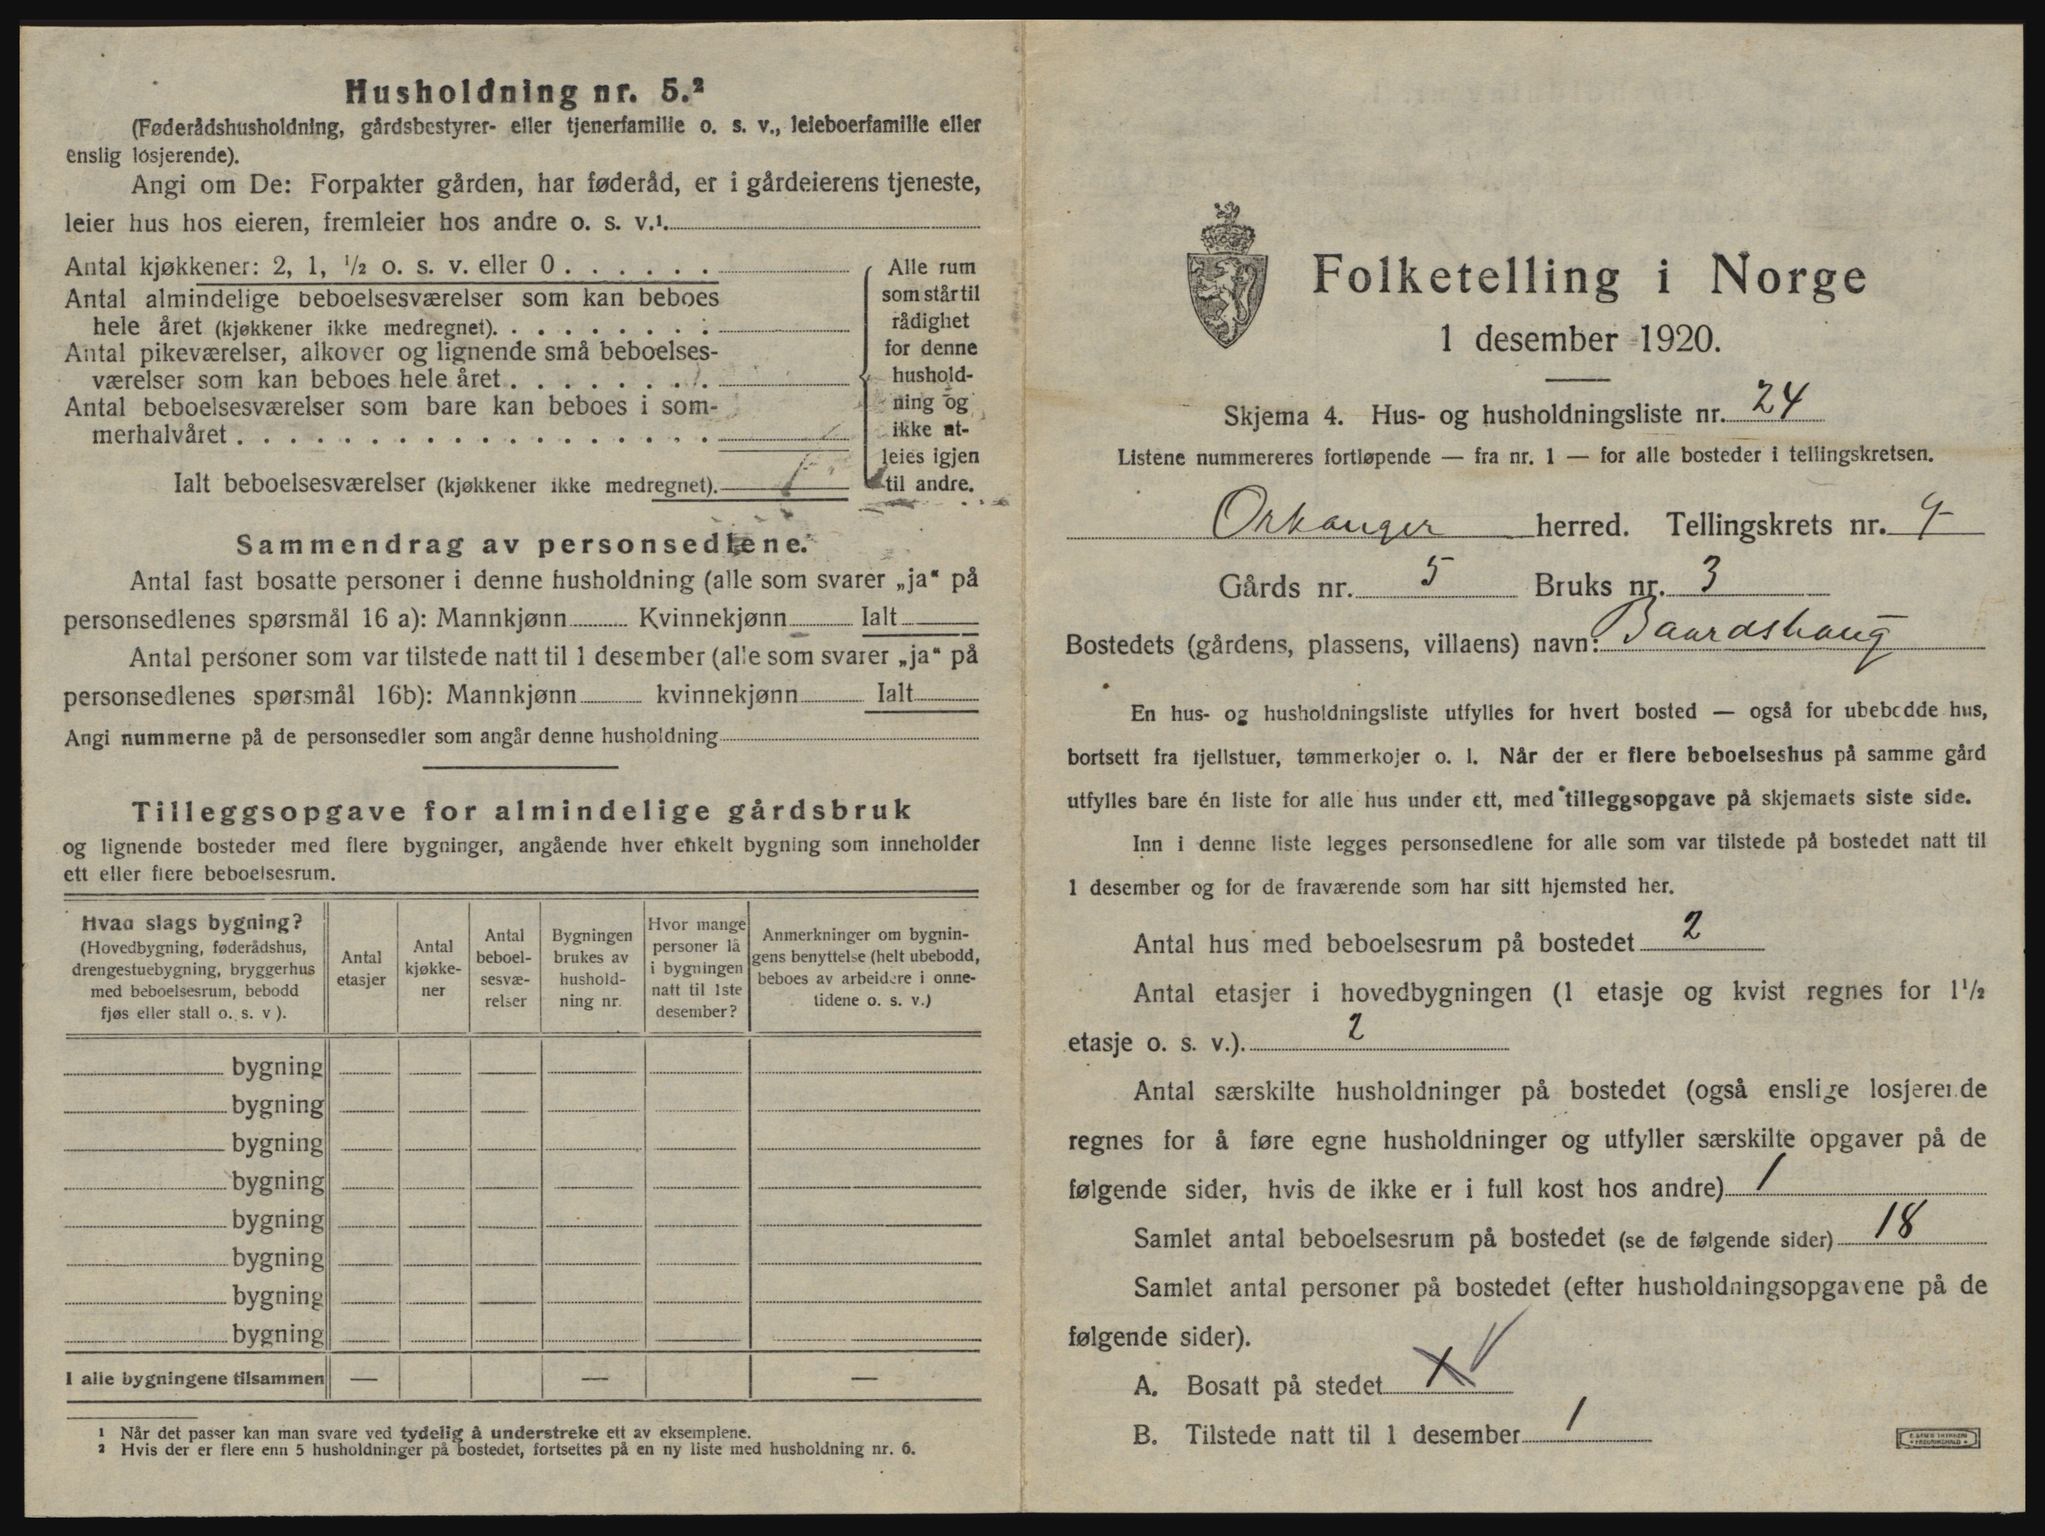 Husholdning nr. 5.²
(Føderådshusholdning, gårdsbestyrer- eller tjenerfamilie o. s. v., leieboerfamilie eller
enslig losjerende).
Angi om De: Forpakter gården, har føderåd, er i gårdeierens tjeneste,
leier hus hos eieren, fremleier hos andre o. s. v.¹
Antal kjøkkener: 2, 1, ½ o. s. v. eller 0 . . . . . .
Antal almindelige beboelsesværelser som kan beboes
hele året (kjøkkener ikke medregnet). . . . . . . . .
Antal pikeværelser, alkover og lignende små beboelses-
værelser som kan beboes hele året . . . . . . . .
Antal beboelsesværelser som bare kan beboes i som-
merhalvåret . . . . . . . . . . . . . . . . . .
Ialt beboelsesværelser (kjøkkener ikke medregnet).
Alle rum
som står til
rådighet
for denne
hushold-
ning og
ikke at-
leies igjen
til andre.
Sammendrag av personsedlene.
Antal fast bosatte personer i denne husholdning (alle som svarer „ja“ på
personsedlenes spørsmål 16 a): Mannkjønn Kvinnekjønn Ialt
Antal personer som var tilstede natt til 1 desember (alle som svarer „ja“ på
personsedlenes spørsmål 16b): Mannkjønn kvinnekjønn Ialt
Angi nummerne på de personsedler som angår denne husholdning
Tilleggsopgave for almindelige gårdsbruk
og lignende bosteder med flere bygninger, angående hver enkelt bygning som inneholder
ett eller flere beboelsesrum.
Hvad slags bygning?
(Hovedbygning, føderådshus,
drengestuebygning, bryggerhus
med beboelsesrum, bebodd
fjøs eller stall o. s. v ).
Antal
etasjer
Antal
kjøkke-
ner
Antal
beboel-
sesvæ-
relser
Bygningen
brukes av
hushold-
ning nr.
Hvor mange
personer lå
i bygningen
natt til 1ste
desember?
Anmerkninger om bygnin-
gens benyttelse (helt ubebodd,
beboes av arbeidere i onne-
tidene o. s. v.)
bygning
bygning
bygning
bygning
bygning
bygning
bygning
bygning
I alle bygningene tilsammen — — —
¹ Når det passer kan man svare ved tydelig å understreke ett av eksemplene.
² Hvis der er flere enn 5 husholdninger på bostedet, fortsettes på en ny liste med husholdning nr. 6.
Folketelling i Norge
1 desember 1920.
Skjema 4. Hus- og husholdningsliste nr. 24
Listene nummereres fortløpende — fra nr. 1 — for alle bosteder i tellingskretsen.
Orkanger herred. Tellingskrets nr. 9
Gårds nr. 5 Bruks nr. 3
Bostedets (gårdens, plassens, villaens) navn: Baardshaug
En hus- og husholdningsliste utfylles for hvert bosted — også for ubebodde hus,
bortsett fra fjellstuer, tømmerkojer o. l. Når der er flere beboelseshus på samme gård
utfylles bare én liste for alle hus under ett, med tilleggsopgave på skjemaets siste side.
Inn i denne liste legges personsedlene for alle som var tilstede på bostedet natt til
1 desember og for de fraværende som har sitt hjemsted her.
Antal hus med beboelsesrum på bostedet 2
Antal etasjer i hovedbygningen (1 etasje og kvist regnes for 1½
etasje o. s. v.). 2
Antal særskilte husholdninger på bostedet (også enslige losjerende
regnes for å føre egne husholdninger og utfyller særskilte opgaver på de
følgende sider, hvis de ikke er i full kost hos andre) 1
Samlet antal beboelsesrum på bostedet (se de følgende sider) 18
Samlet antal personer på bostedet (efter husholdningsopgavene på de
følgende sider).
A. Bosatt på stedet
B. Tilstede natt til 1 desember 1